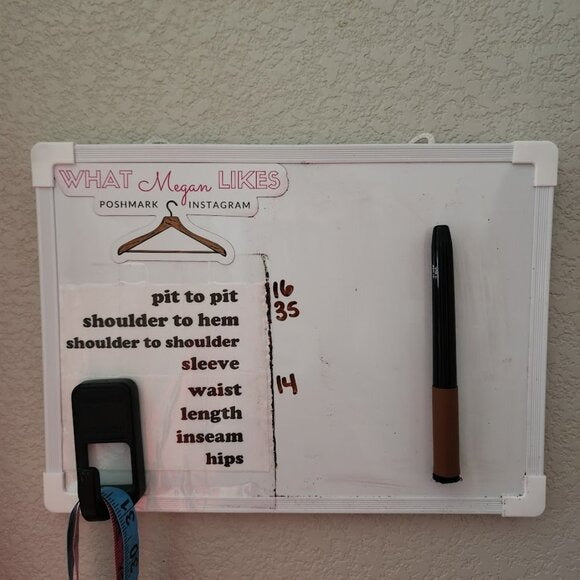 WHAT Megan LIKES
POSHMARK INSTAGRAM
pit to pit 16
shoulder to hem 35
shoulder to shoulder
sleeve
waist 14
length
inseam
hips
31
30